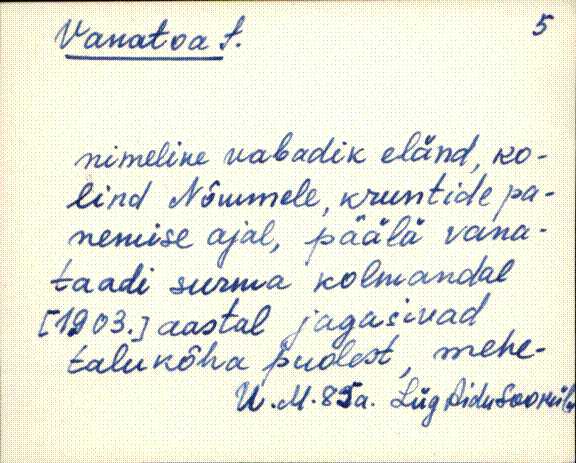 Vanatoa t. 5
nimeline vabadik eländ, ko-
lind Nõmmele, kruntide pa-
nemise ajal, päälä vana-
taadi surma kolmandal
[1903.] aastal jagasivad
talukõha puolest, mehe-
U. M. 85a. Lüg Aidu Sooküla